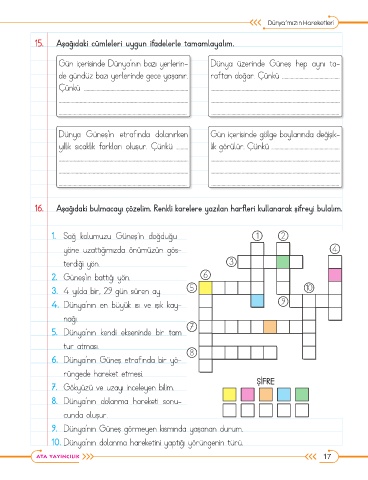 Dünya'mızın Hareketleri
15. Aşağıdaki cümleleri uygun ifadelerle tamamlayalım.
Gün içerisinde Dünya'nın bazı yerlerin-
de gündüz bazı yerlerinde gece yaşanır.
Çünkü
Dünya üzerinde Güneş hep aynı ta-
raftan doğar. Çünkü
Dünya Güneş'in etrafında dolanırken
yıllık sıcaklık farkları oluşur. Çünkü
Gün içerisinde gölge boylarında değişik-
lik görülür. Çünkü
16. Aşağıdaki bulmacayı çözelim. Renkli karelere yazılan harfleri kullanarak şifreyi bulalım.
1. Sağ kolumuzu Güneş'in doğduğu
yöne uzattığımızda önümüzün gös-
terdiği yön.
2. Güneş'in battığı yön.
3. 4 yılda bir, 29 gün süren ay.
4. Dünya'nın en büyük ısı ve ışık kay-
nağı.
5. Dünya'nın kendi ekseninde bir tam
tur atması.
6. Dünya'nın Güneş etrafında bir yö-
rüngede hareket etmesi.
7. Gökyüzü ve uzayı inceleyen bilim.
8. Dünya'nın dolanma hareketi sonu-
cunda oluşur.
9. Dünya'nın Güneş görmeyen kısmında yaşanan durum.
10. Dünya'nın dolanma hareketini yaptığı yörüngenin türü.
1
2
4
3
6
5
10
9
7
8
ŞİFRE
ATA YAYINCILIK
17